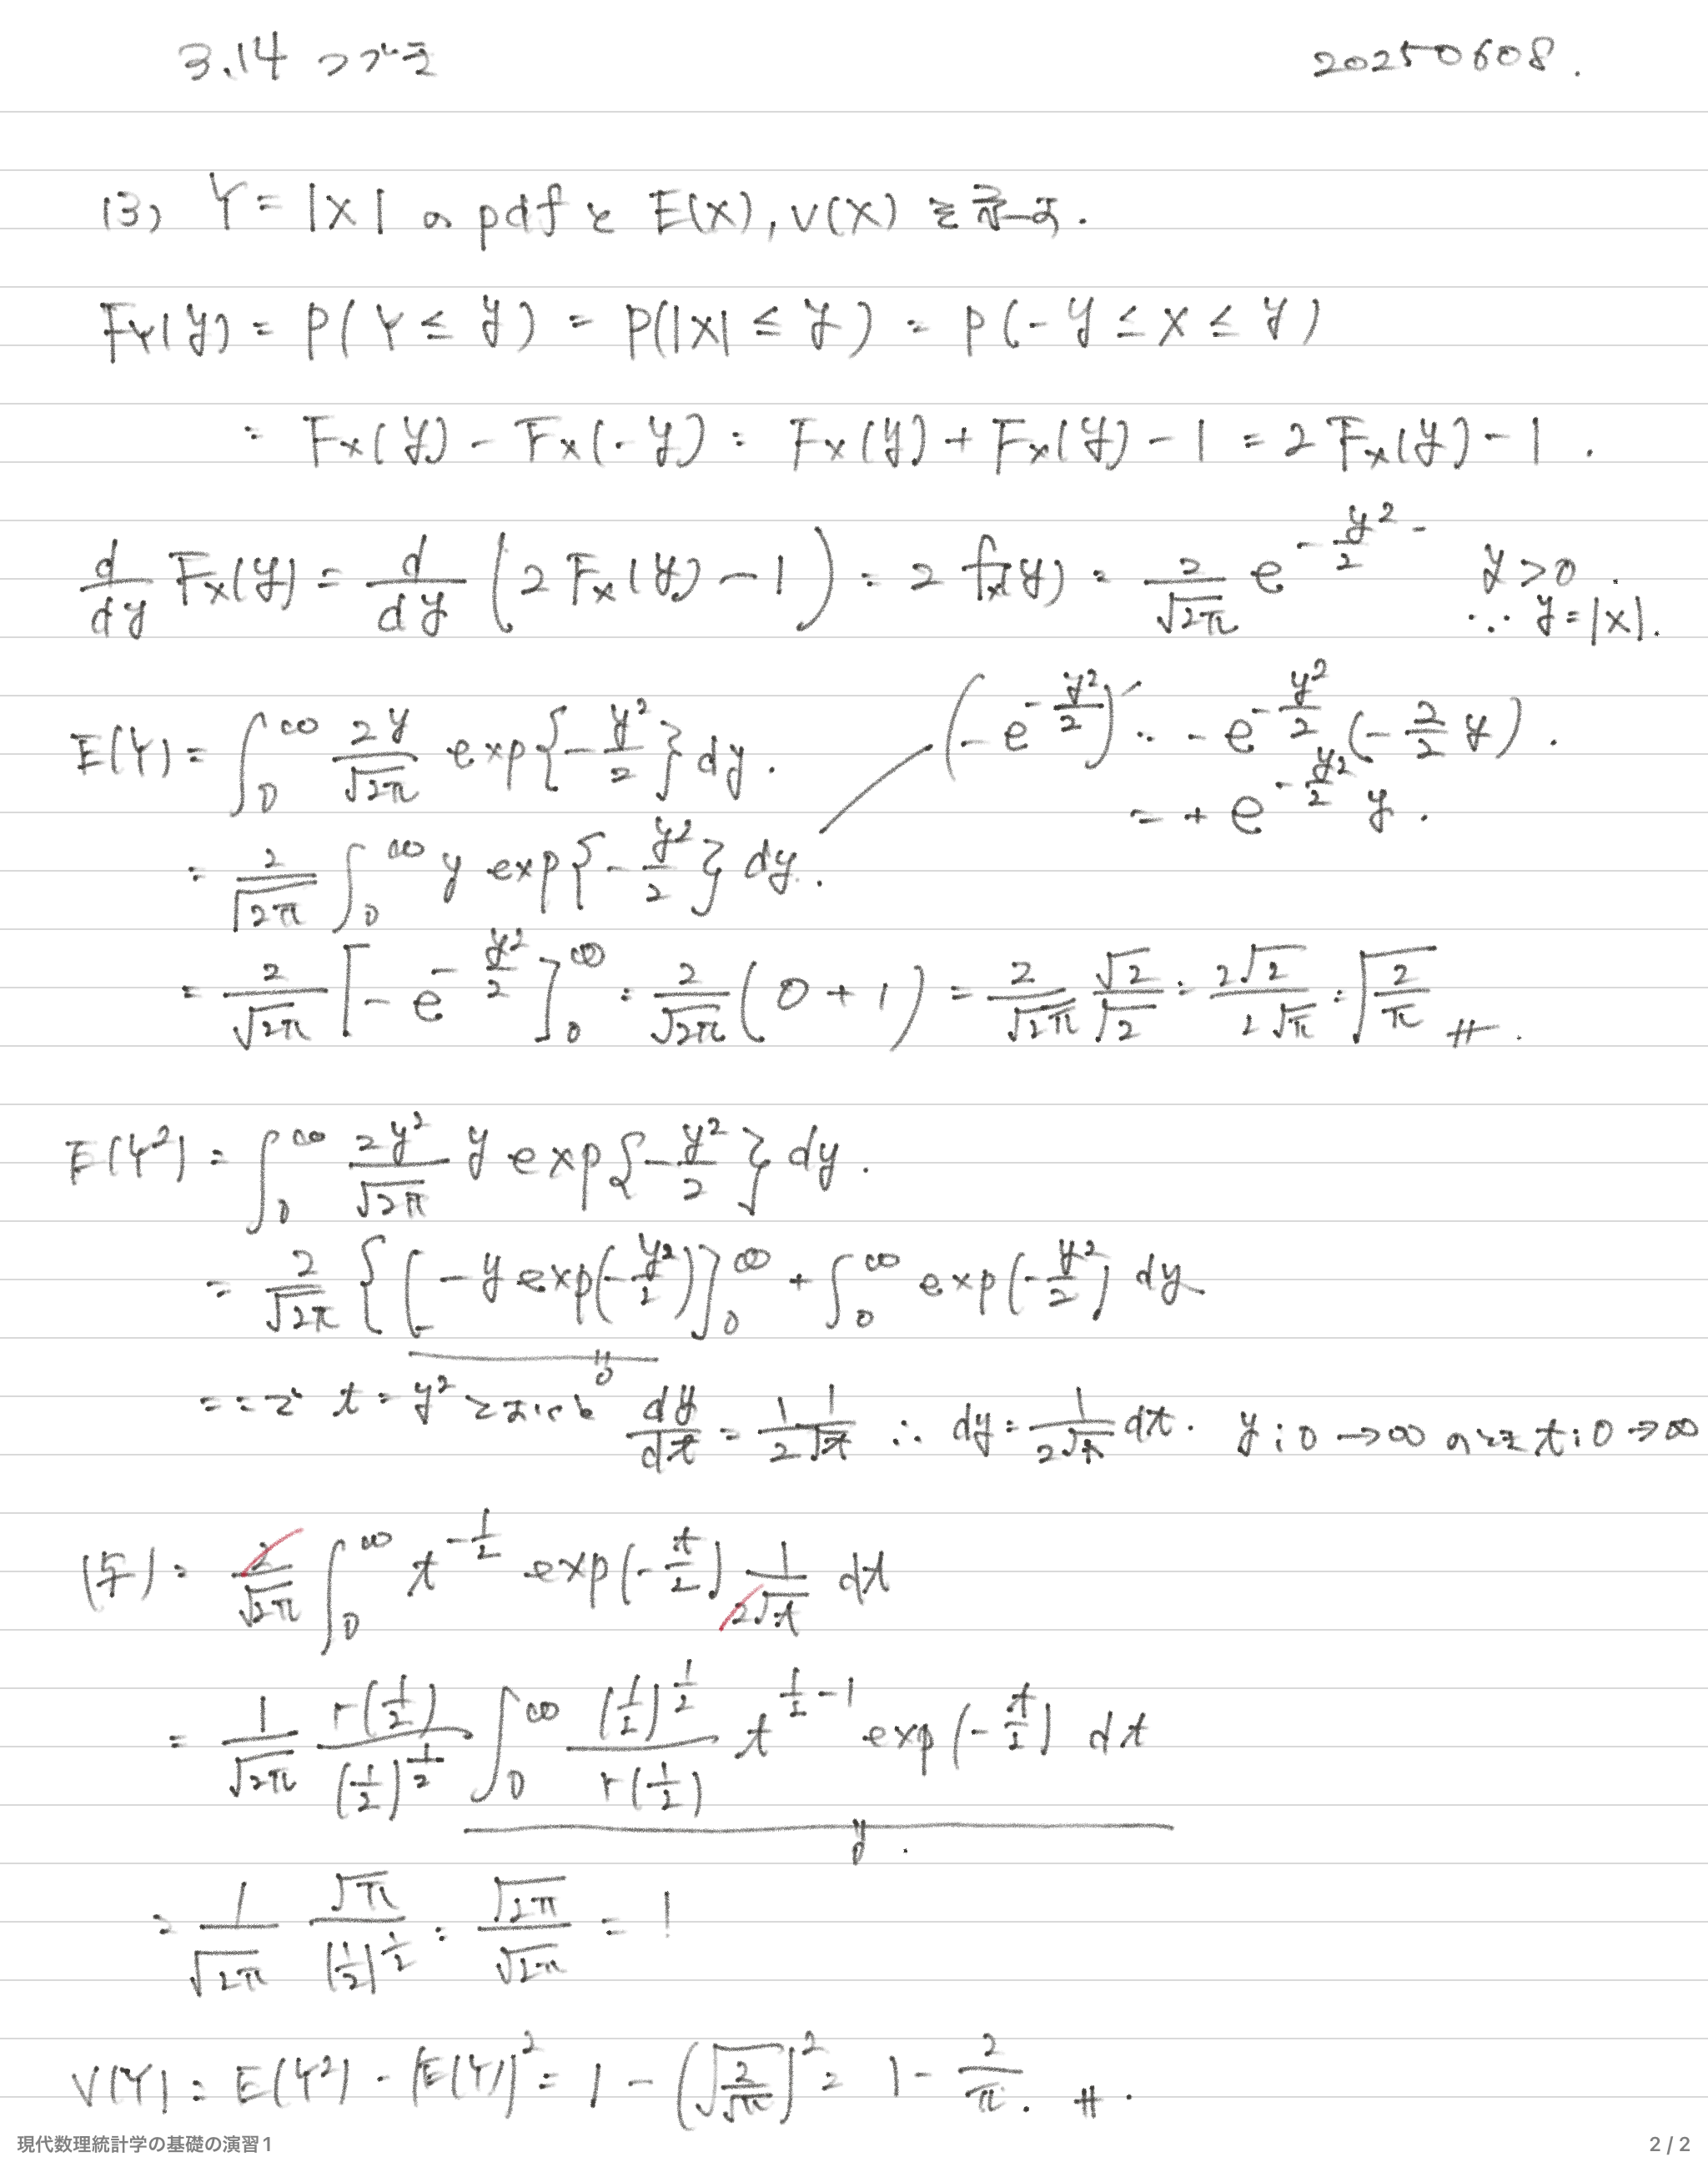 3.14 つづき 20250608.
(3) Y = |X| の pdf と E(X), V(X) を示す.
F_Y(y) = P(Y ≤ y) = P(|X| ≤ y) = P(-y ≤ X ≤ y)
= F_X(y) - F_X(-y) = F_X(y) + F_X(y) - 1 = 2 F_X(y) - 1 .
d/dy F_X(y) = d/dy (2 F_X(y) - 1) = 2 f_X(y) = 2/√(2π) e^{-y²/2} y > 0 .
∵ y = |X|.
E(Y) = ∫_0^∞ 2y/√(2π) exp{-y²/2} dy . (-e^{-y²/2})' = -e^{-y²/2} (-2/2 y) .
= + e^{-y²/2} y .
= 2/√(2π) ∫_0^∞ y exp{-y²/2} dy .
= 2/√(2π) [-e^{-y²/2}]_0^∞ = 2/√(2π) (0 + 1) = 2/√(2π) √2/√2 = 2√2/2√π = √(2/π) #.
E(Y²) = ∫_0^∞ 2y²/√(2π) y exp{-y²/2} dy .
= 2/√(2π) { [-y exp(-y²/2)]_0^∞ + ∫_0^∞ exp(-y²/2) dy
0
ここで t = y² とおくと dy/dt = 1/2 1/√t ∴ dy = 1/(2√t) dt . y : 0 → ∞ のとき t : 0 → ∞
(与) = 2/√(2π) ∫_0^∞ t^{-1/2} exp(-t/2) 1/(2√t) dt
= 1/√(2π) Γ(1/2)/(1/2)^{1/2} ∫_0^∞ (1/2)^{1/2}/Γ(1/2) t^{1/2 - 1} exp(-t/2) dt
= 1/√(2π) √π/(1/2)^{1/2} = √(2π)/√(2π) = 1
V(Y) = E(Y²) - (E(Y))² = 1 - (√(2/√π))² = 1 - 2/π . # .
現代数理統計学の基礎の演習1 2 / 2